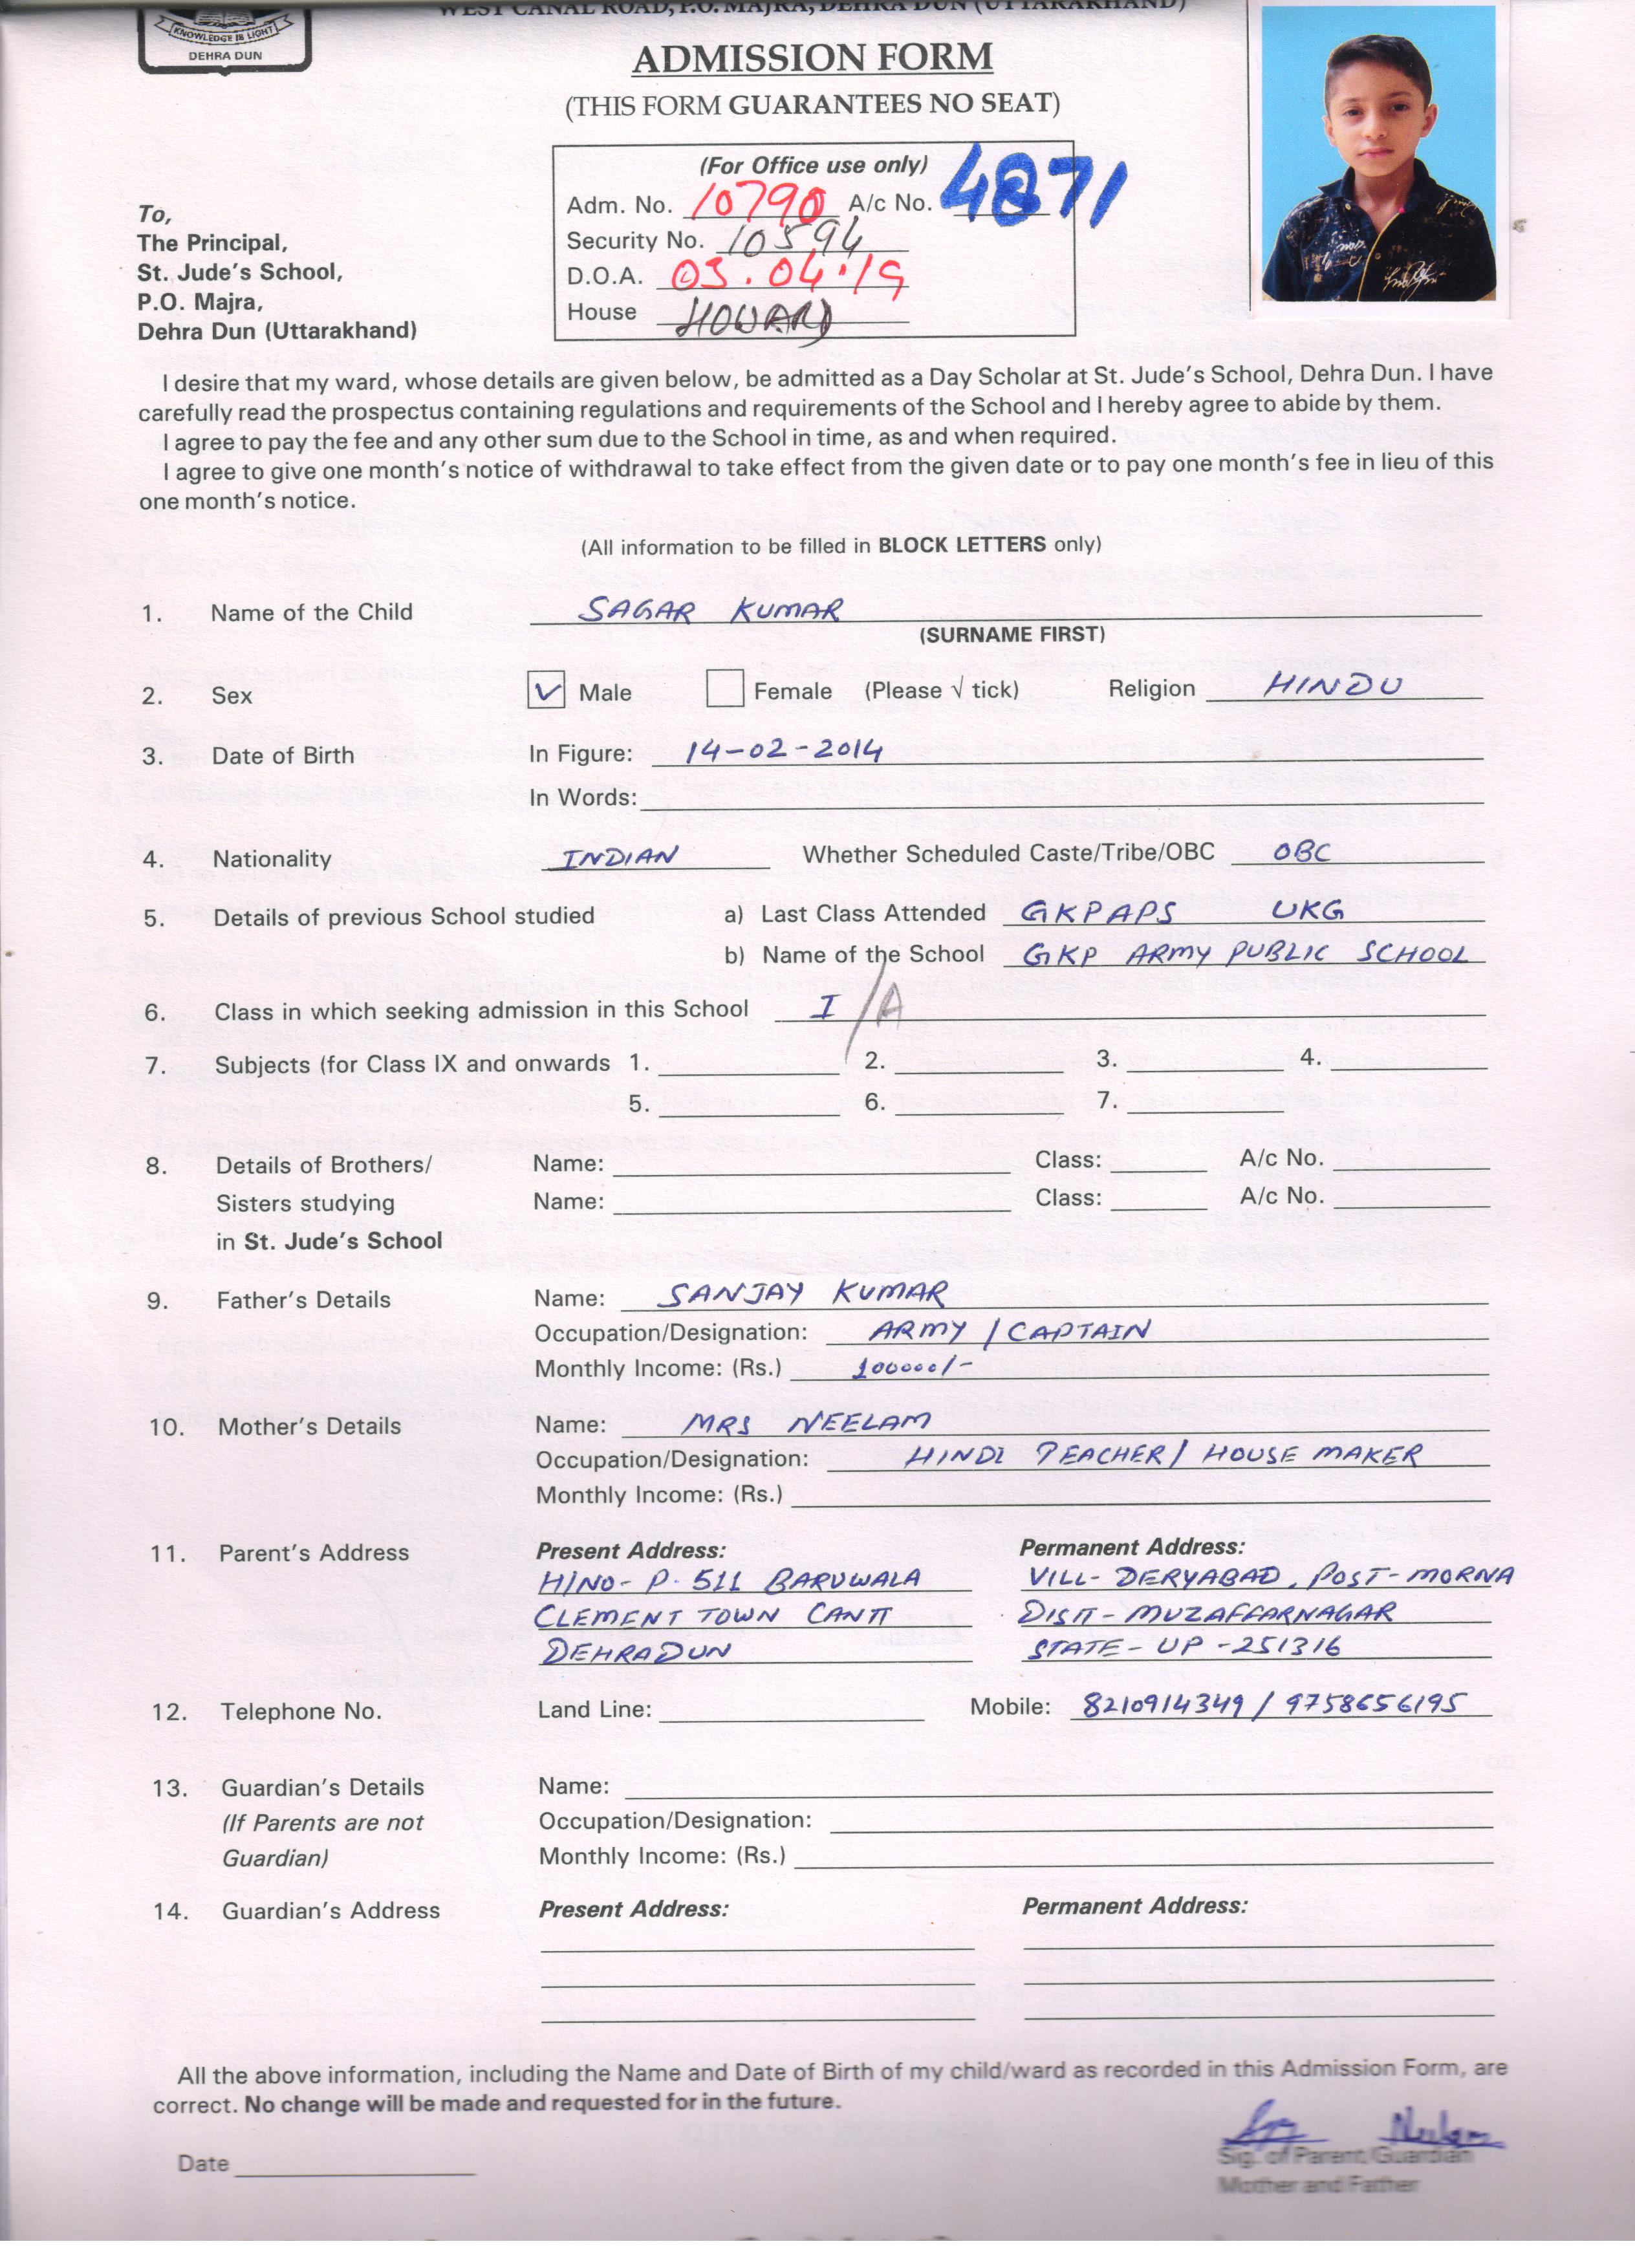 WEST CANAL ROAD, P.O. MAJRA, DEHRA DUN (UTTARAKHAND)
KNOWLEDGE IS LIGHT
DEHRA DUN
ADMISSION FORM
(THIS FORM GUARANTEES NO SEAT)
(For Office use only)
Adm. No. 10790 A/c No. 4871
Security No. 10594
D.O.A. 03.04.19
House HOWARD
To,
The Principal,
St. Jude's School,
P.O. Majra,
Dehra Dun (Uttarakhand)
I desire that my ward, whose details are given below, be admitted as a Day Scholar at St. Jude's School, Dehra Dun. I have
carefully read the prospectus containing regulations and requirements of the School and I hereby agree to abide by them.
I agree to pay the fee and any other sum due to the School in time, as and when required.
I agree to give one month's notice of withdrawal to take effect from the given date or to pay one month's fee in lieu of this
one month's notice.
(All information to be filled in BLOCK LETTERS only)
1. Name of the Child SAGAR KUMAR
(SURNAME FIRST)
2. Sex Male Female (Please √ tick) Religion HINDU
3. Date of Birth In Figure: 14-02-2014
In Words:
4. Nationality INDIAN Whether Scheduled Caste/Tribe/OBC OBC
5. Details of previous School studied a) Last Class Attended GKPAPS UKG
b) Name of the School GKP ARMY PUBLIC SCHOOL
6. Class in which seeking admission in this School I /A
7. Subjects (for Class IX and onwards 1. 2. 3. 4.
5. 6. 7.
8. Details of Brothers/ Name: Class: A/c No.
Sisters studying Name: Class: A/c No.
in St. Jude's School
9. Father's Details Name: SANJAY KUMAR
Occupation/Designation: ARMY / CAPTAIN
Monthly Income: (Rs.) 100000/-
10. Mother's Details Name: MRS NEELAM
Occupation/Designation: HINDI TEACHER / HOUSE MAKER
Monthly Income: (Rs.)
11. Parent's Address Present Address: Permanent Address:
H/NO- P. 511 BARUWALA VILL- DERYABAD, POST- MORNA
CLEMENT TOWN CANTT DISTT- MUZAFFARNAGAR
DEHRADUN STATE- UP -251316
12. Telephone No. Land Line: Mobile: 8210914349 / 9758656195
13. Guardian's Details Name:
(If Parents are not Occupation/Designation:
Guardian) Monthly Income: (Rs.)
14. Guardian's Address Present Address: Permanent Address:
All the above information, including the Name and Date of Birth of my child/ward as recorded in this Admission Form, are
correct. No change will be made and requested for in the future.
Neelam
Date Sig. of Parent/Guardian
Mother and Father